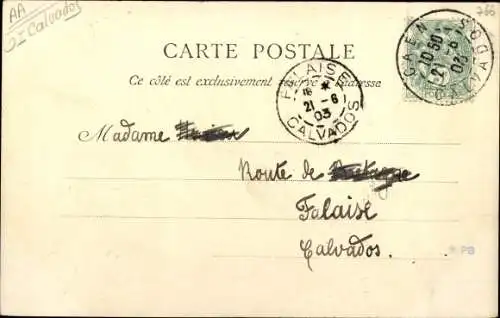 AA
Calvados
766
CARTE POSTALE
Ce côté est exclusivement réservé à l'adresse
CAEN CALVADOS
10 50
21 -6
03
FALAISE CALVADOS
18 *
21 -6
03
Madame
Route de Bretagne
Falaise
Calvados.
* PB